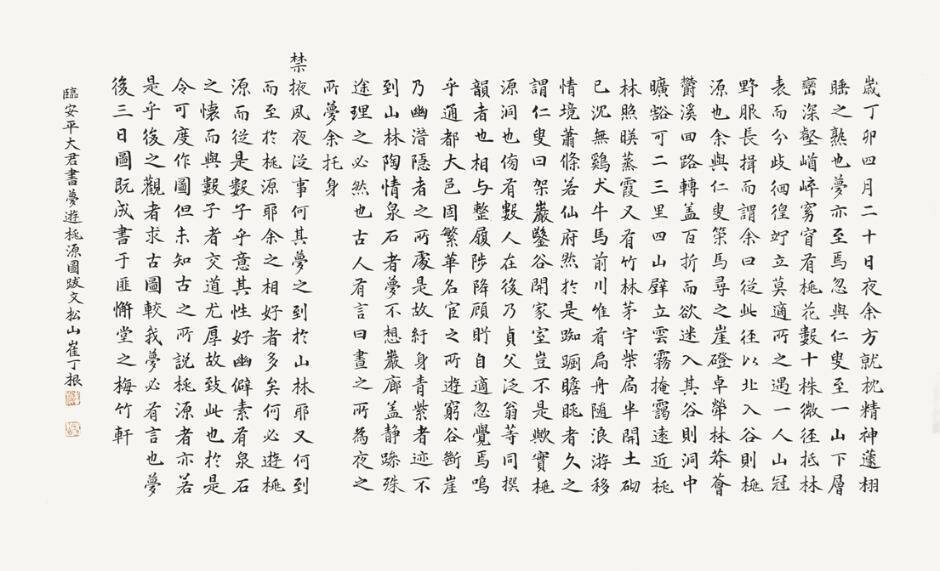 歲丁卯四月二十日夜余方就枕精神蘧栩
睡之熟也夢亦至焉忽與仁叟至一山下層
巒深壑崷崒窈窅有桃花數十株微徑抵林
表而分歧徊徨竚立莫適所之遇一人山冠
野服長揖而謂余曰從此徑以北入谷則桃
源也余與仁叟策馬尋之崖磴卓犖林莽薈
鬱溪回路轉盖百折而欲迷入其谷則洞中
曠豁可二三里四山壁立雲霧掩靄遠近桃
林照暎蒸霞又有竹林茅宇柴扃半開土砌
已沉無鷄犬牛馬前川惟有扁舟随浪游移
情境蕭條若仙府然於是踟躕瞻眺者久之
謂仁叟曰架巖鑿谷開家室豈不是歟實桃
源洞也傍有數人在後乃貞父泛翁等同撰
韻者也相与整履陟降顧眄自適忽覺焉嗚
乎通都大邑固繁華名宦之所遊窮谷斷崖
乃幽潜隱者之所處是故紆身青紫者迹不
到山林陶情泉石者夢不想巖廊盖静躁殊
途理之必然也古人有言曰晝之所為夜之
所夢余托身
禁掖夙夜從事何其夢之到於山林耶又何到
而至於桃源耶余之相好者多矣何必遊桃
源而從是數子乎意其性好幽僻素有泉石
之懷而與數子者交道尤厚故致此也於是
令可度作圖但未知古之所說桃源者亦若
是乎後之觀者求古圖較我夢必有言也夢
後三日圖旣成書于匪懈堂之梅竹軒
臨安平大君書夢遊桃源圖跋文松山崔丁根